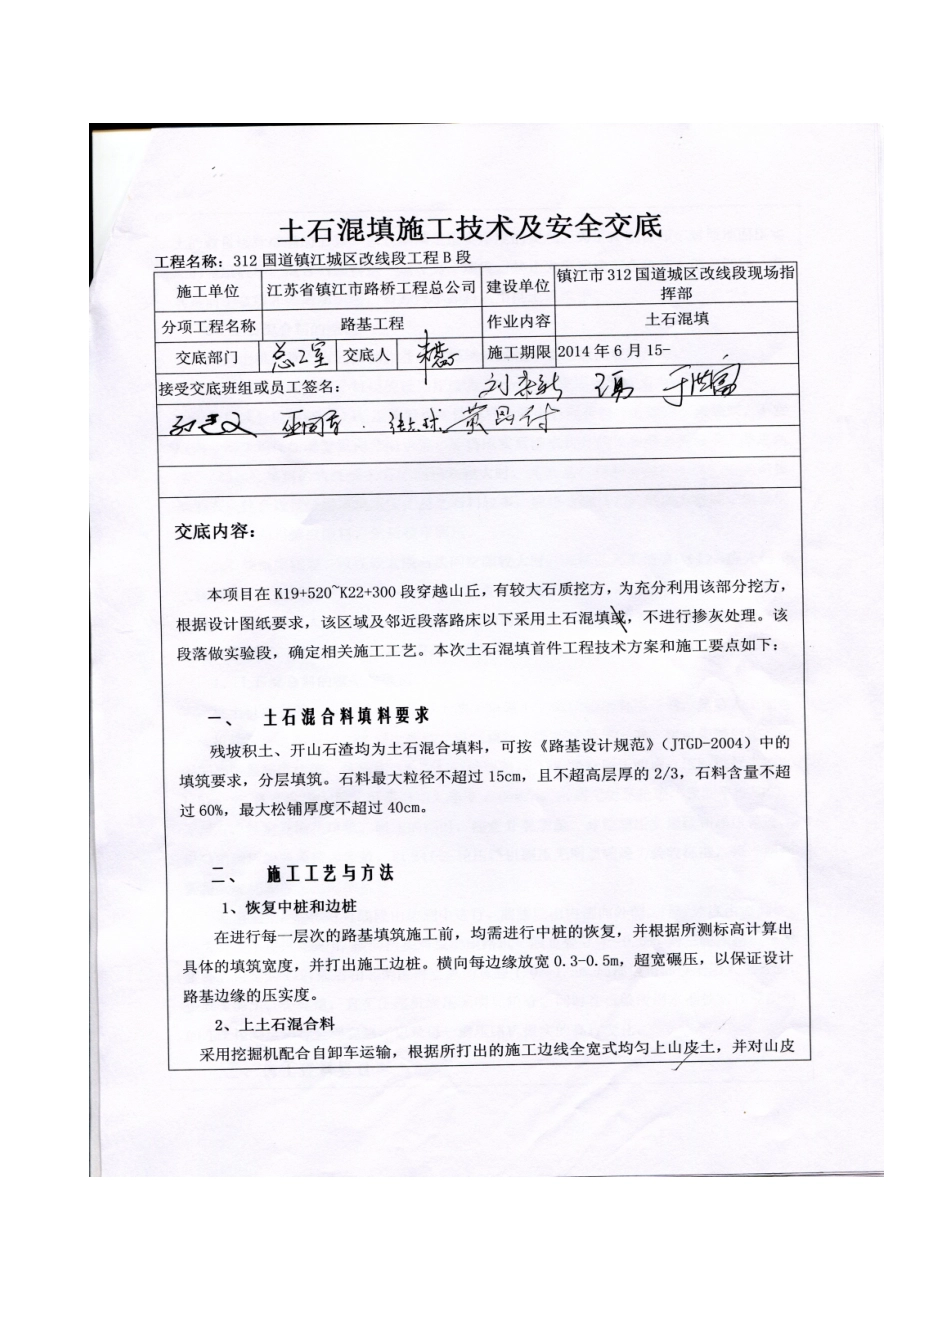 土石混填施工技术及安全交底
工程名称：312 国道镇江城区改线段工程 B 段
施工单位 江苏省镇江市路桥工程总公司 建设单位 镇江市 312 国道城区改线段现场指
挥部
分项工程名称 路基工程 作业内容 土石混填
交底部门 总工室 交底人 施工期限 2014 年 6 月 15-
接受交底班组或员工签名：
交底内容：
本项目在 K19+520~K22+300 段穿越山丘，有较大石质挖方，为充分利用该部分挖方，
根据设计图纸要求，该区域及邻近段落路床以下采用土石混填或，不进行掺灰处理。该
段落做实验段，确定相关施工工艺。本次土石混填首件工程技术方案和施工要点如下：
一、 土石混合料填料要求
残坡积土、开山石渣均为土石混合填料，可按《路基设计规范》（JTGD-2004）中的
填筑要求，分层填筑。石料最大粒径不超过 15cm，且不超高层厚的 2/3，石料含量不超
过 60%，最大松铺厚度不超过 40cm。
二、 施工工艺与方法
1、恢复中桩和边桩
在进行每一层次的路基填筑施工前，均需进行中桩的恢复，并根据所测标高计算出
具体的填筑宽度，并打出施工边桩。横向每边缘放宽 0.3-0.5m，超宽碾压，以保证设计
路基边缘的压实度。
2、上土石混合料
采用挖掘机配合自卸车运输，根据所打出的施工边线全宽式均匀上山皮土，并对山皮